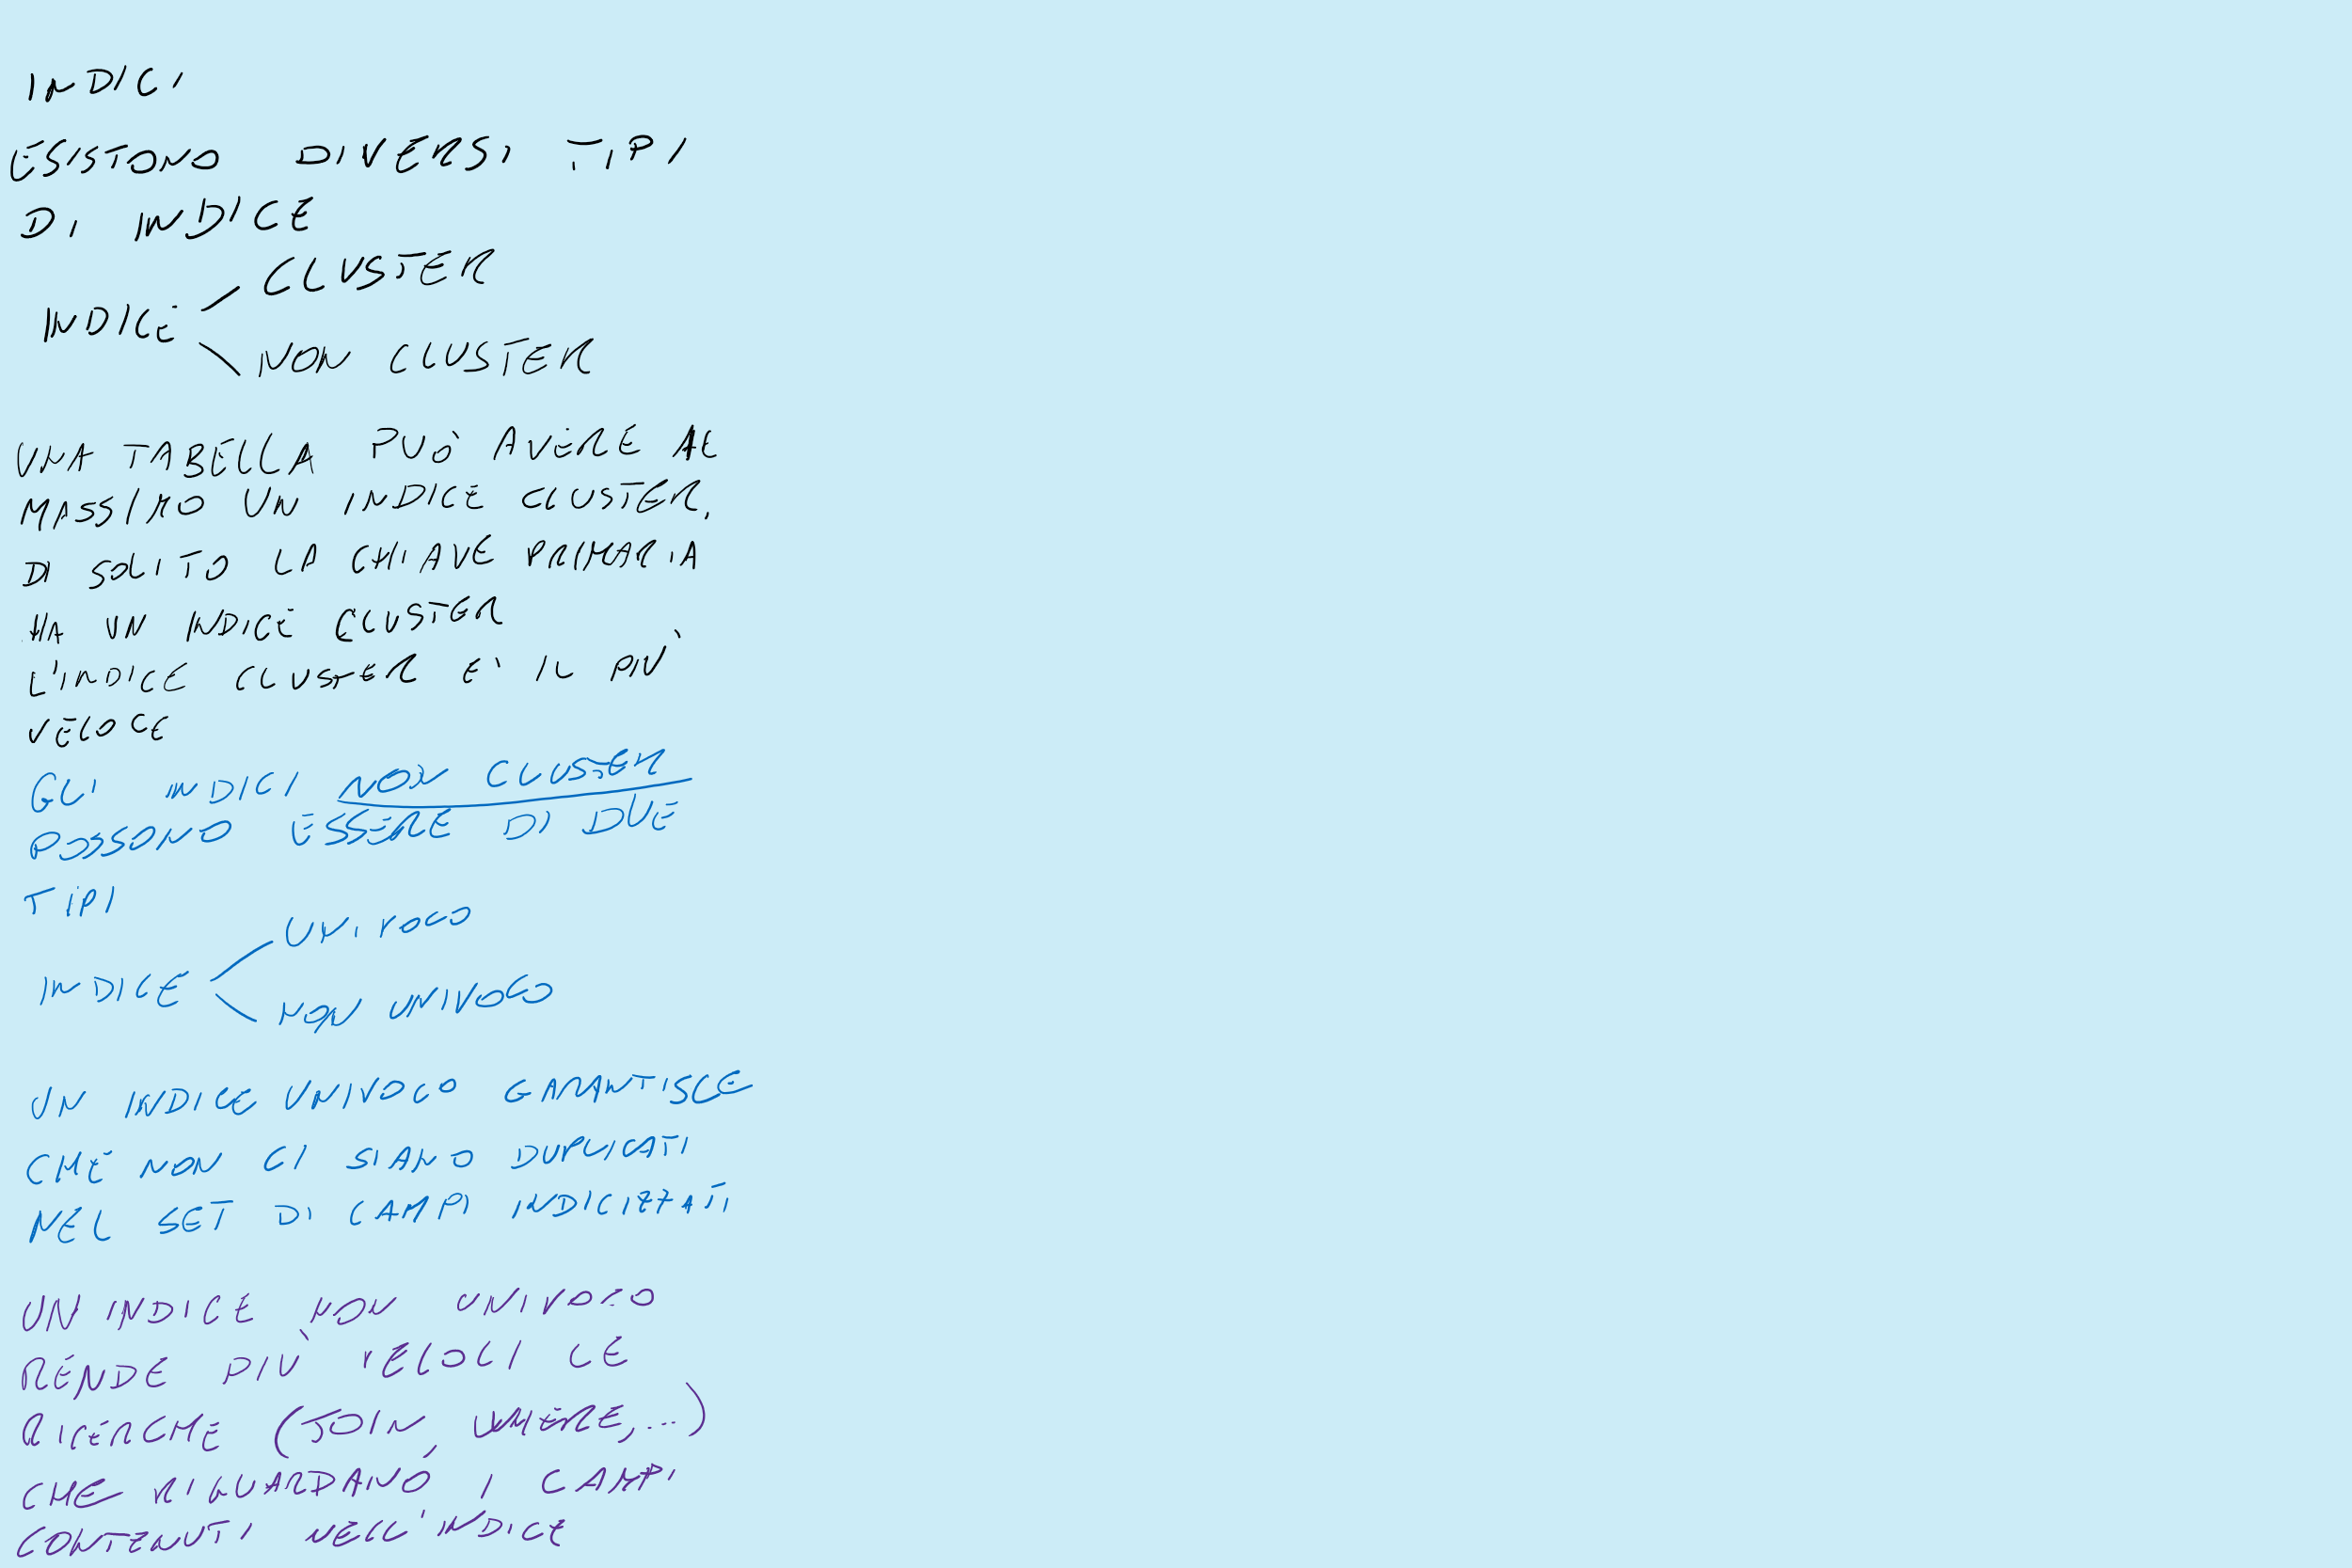 INDICI
ESISTONO DIVERSI TIPI
DI INDICE
CLUSTER
INDICE
NON CLUSTER
UNA TABELLA PUÒ AVERE AL
MASSIMO UN INDICE CLUSTER,
DI SOLITO LA CHIAVE PRIMARIA
HA UN INDICE CLUSTER
L'INDICE CLUSTER E' IL PIÙ
VELOCE
GLI INDICI NON CLUSTER
POSSONO ESSERE DI DUE
TIPI
UNIVOCO
INDICE
NON UNIVOCO
UN INDICE UNIVOCO GARANTISCE
CHE NON CI SIANO DUPLICATI
NEL SET DI CAMPI INDICIZZATI
UN INDICE NON UNIVOCO
RENDE PIÙ VELOCI LE
RICERCHE (JOIN, WHERE,...)
CHE RIGUARDANO I CAMPI
CONTENUTI NELL'INDICE